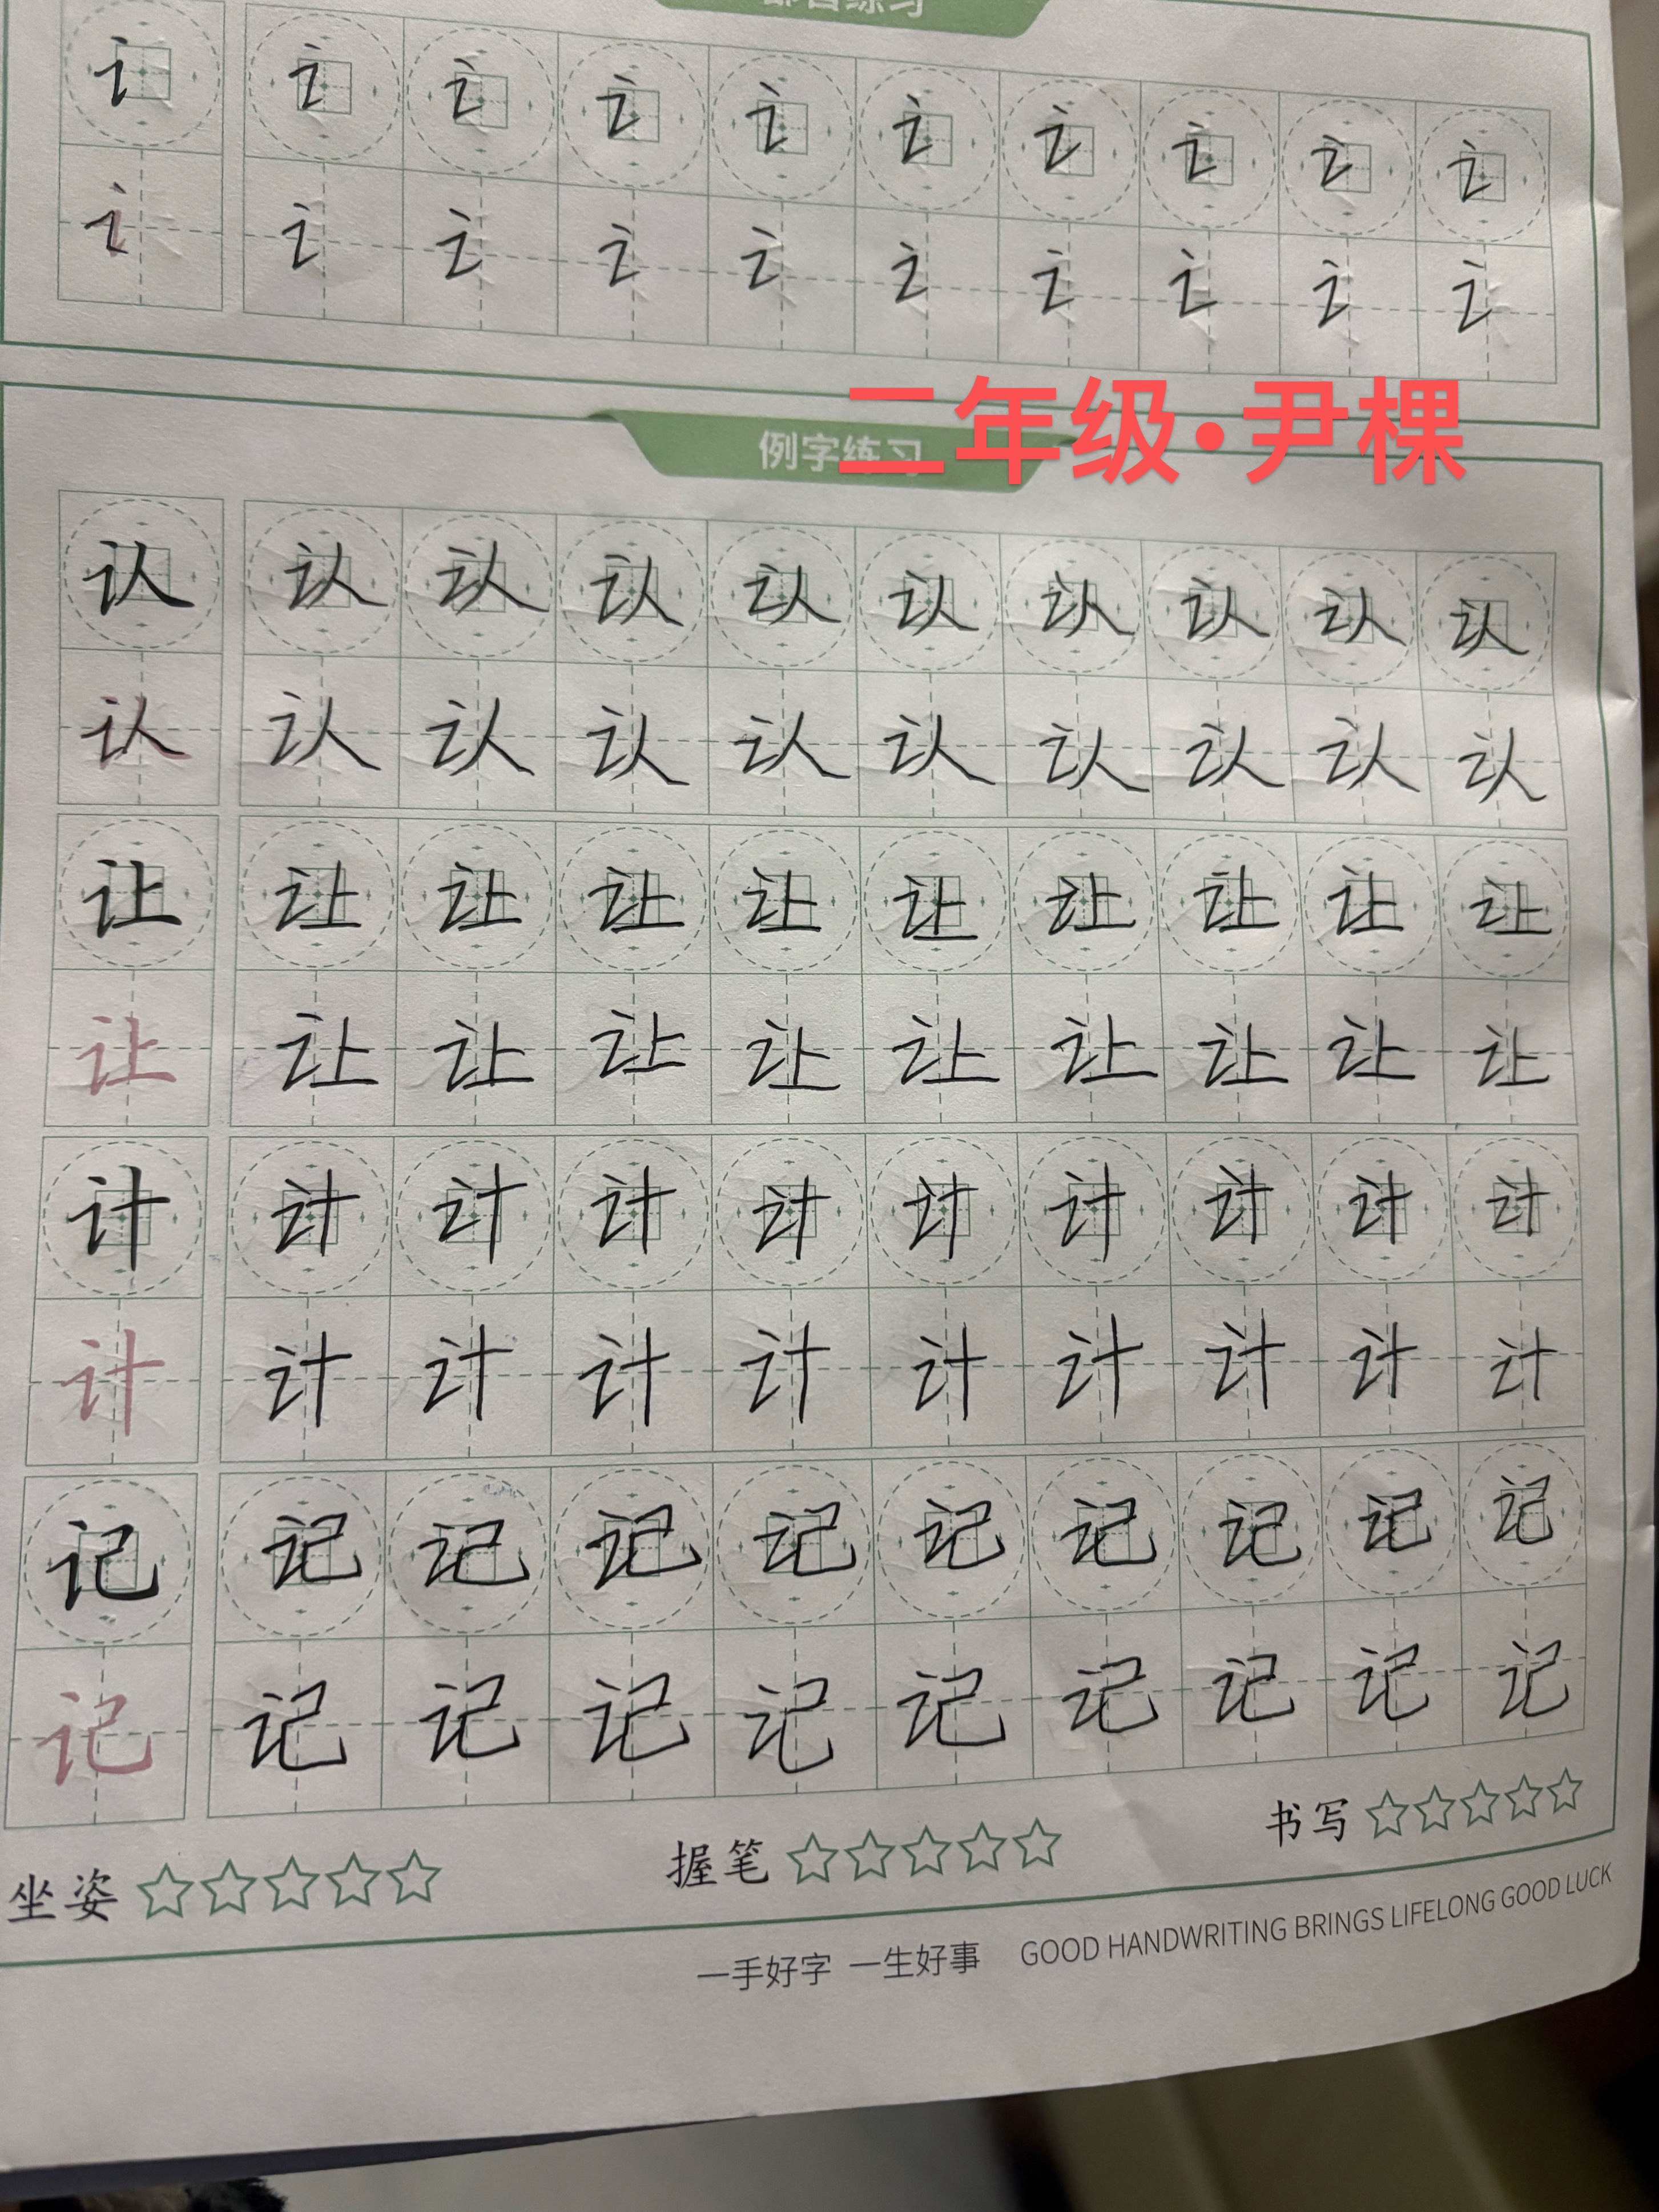 部首练习
讠 讠 讠 讠 讠 讠 讠 讠 讠 讠
讠 讠 讠 讠 讠 讠 讠 讠 讠 讠
二年级·尹棵
例字练习
认 认 认 认 认 认 认 认 认 认
认 认 认 认 认 认 认 认 认 认
让 让 让 让 让 让 让 让 让 让
让 让 让 让 让 让 让 让 让 让
计 计 计 计 计 计 计 计 计 计
计 计 计 计 计 计 计 计 计 计
记 记 记 记 记 记 记 记 记 记
记 记 记 记 记 记 记 记 记 记
坐姿 ☆☆☆☆☆ 握笔 ☆☆☆☆☆ 书写 ☆☆☆☆☆
一手好字 一生好事 GOOD HANDWRITING BRINGS LIFELONG GOOD LUCK